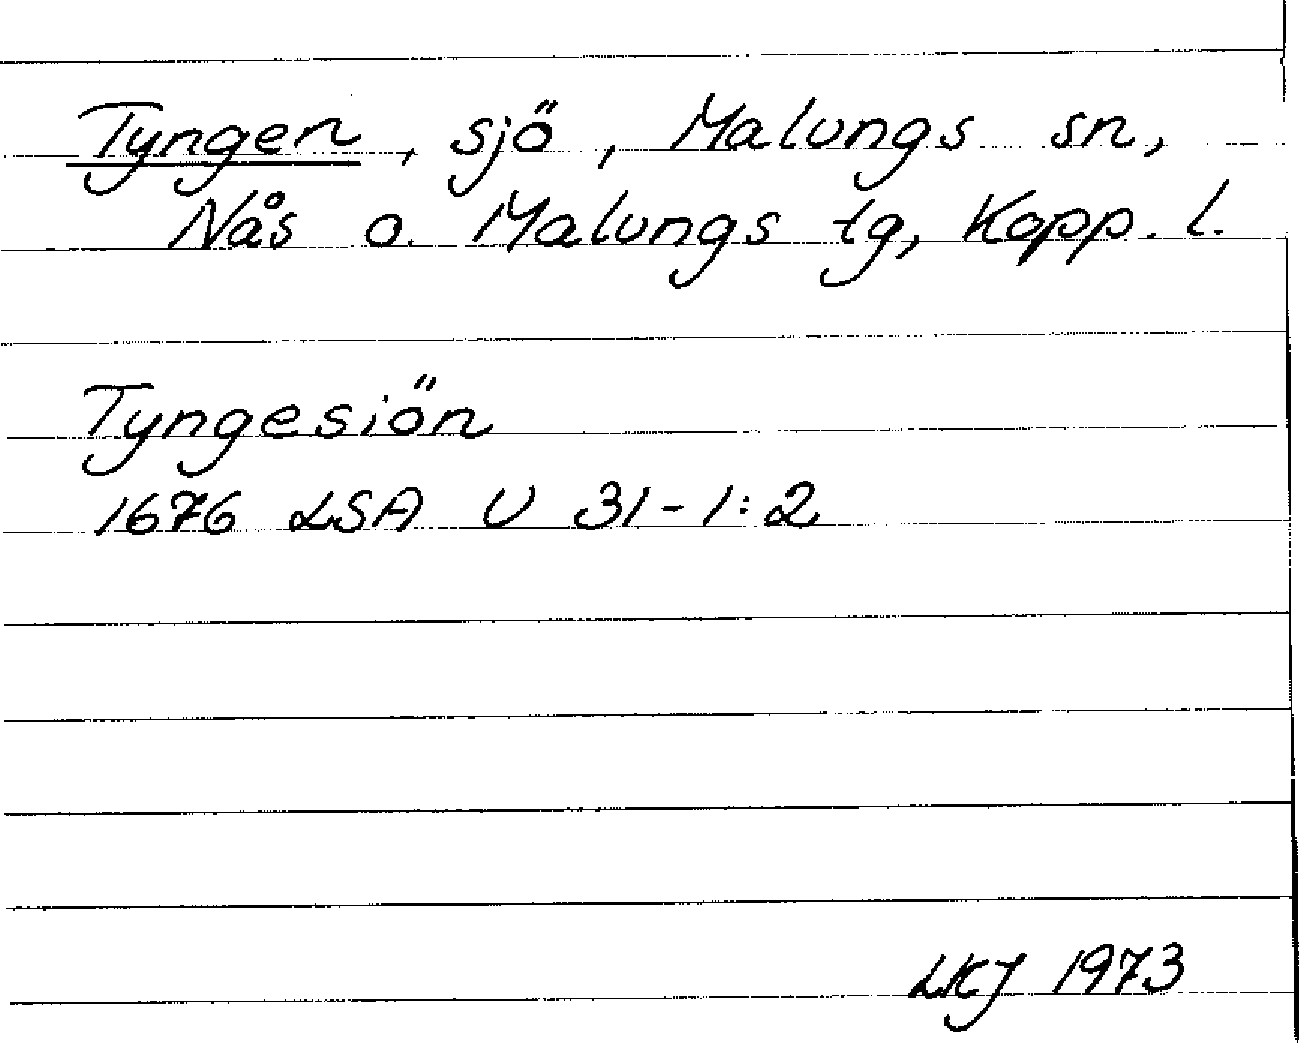 Tyngen, sjö, Malungs sn,
Nås o. Malungs tg, Kopp. l.
Tyngesiön
1676 LSA U 31-1:2
LKJ 1973